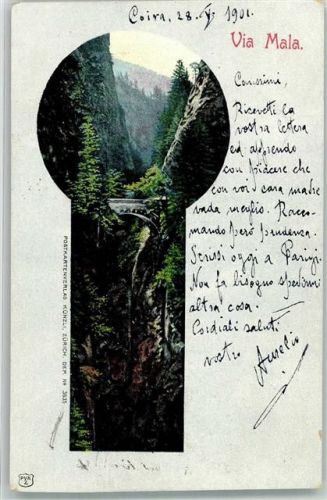 Coira, 28. V 1901.
Via Mala.
Carissimi,
Ricevetti la
vostra lettera
ed apprendo
con piacere che
con voi cara madre
vada meglio. Racco-
mando però prudenza.
Scrissi oggi a Parigi.
Non fa bisogno spedirmi
altra cosa.
Cordiali saluti
vostro Aurelio
POSTKARTENVERLAG KÜNZLI, ZÜRICH. DEP. No 3635